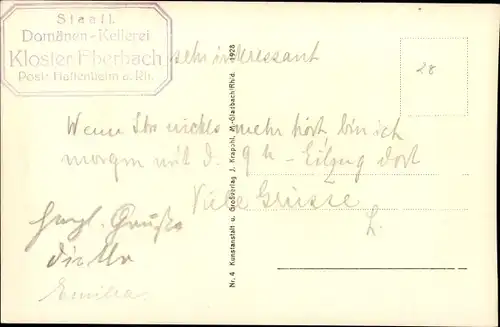 Staatl.
Domänen-Kellerei
Kloster Eberbach
Post: Hattenheim a. Rh.
sehr interessant
28
Wenn Ihr nichts mehr hört bin ich
morgen mit d. 9 h - Eilzug dort
Viele Grüsse
L.
Herzl. Grüße
Emilia.
Nr. 4 Kunstanstalt u. Großverlag J. Krapohl, M.-Gladbach/Rhld. 1928